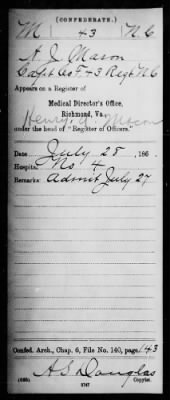 (CONFEDERATE.)
M 43 N C
H. J. Macon
Capt Co F. 43 Regt N C
Appears on a Register of
Medical Director's Office,
Richmond, Va.
Henry J. Macon
under the head of "Register of Officers."
Date July 28, 186 .
Hospital No 4
Remarks: Admit July 27
Confed. Arch., Chap. 6, File No. 140, page 143
A S Douglas
Copyist.